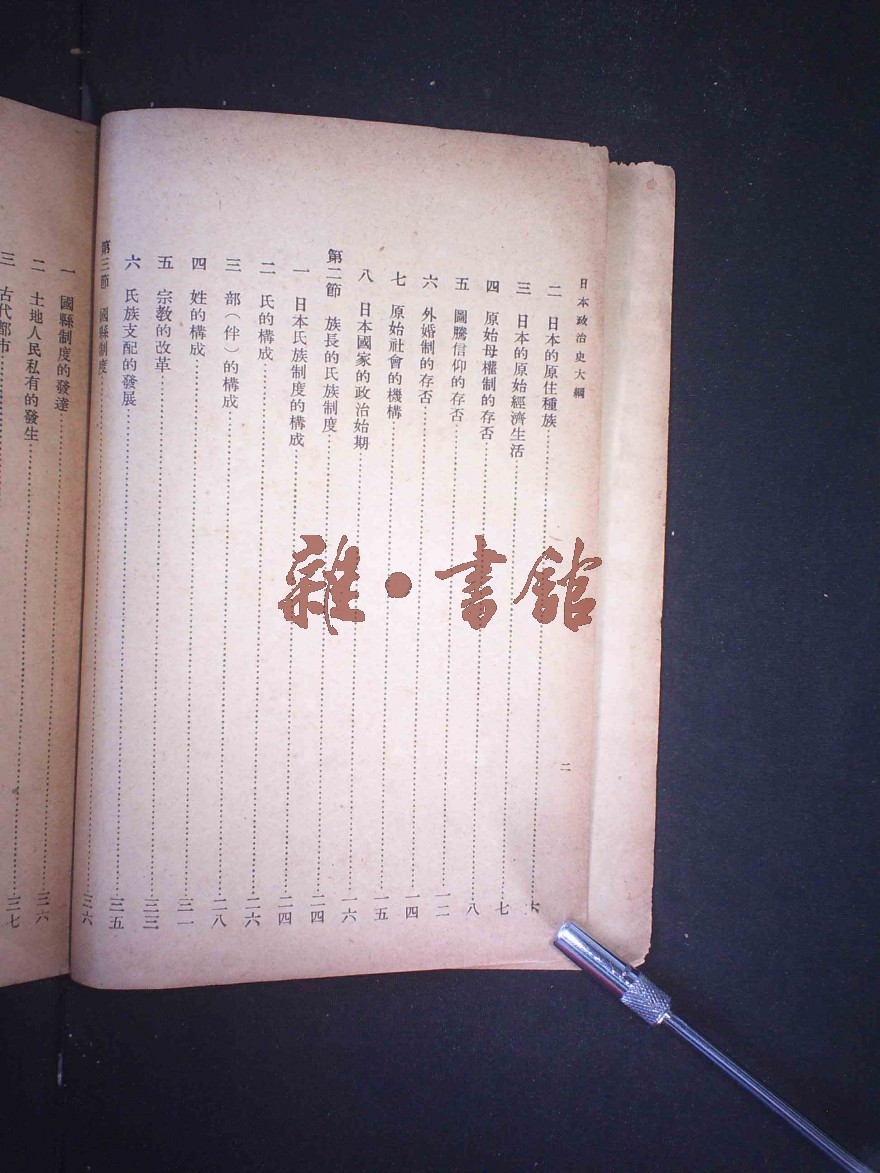 日本政治史大綱
二
二 日本的原住種族……六
三 日本的原始經濟生活……七
四 原始母權制的存否……八
五 圖騰信仰的存否……一二
六 外婚制的存否……一四
七 原始社會的機構……一五
八 日本國家的政治始期……一六
第二節 族長的氏族制度……二四
一 日本氏族制度的構成……二四
二 氏的構成……二六
三 部(伴)的構成……二八
四 姓的構成……三一
五 宗教的改革……三三
六 氏族支配的發展……三五
第三節 國縣制度……三六
一 國縣制度的發達
二 土地人民私有的發生……三六
三 古代都市……三七
雜·書館